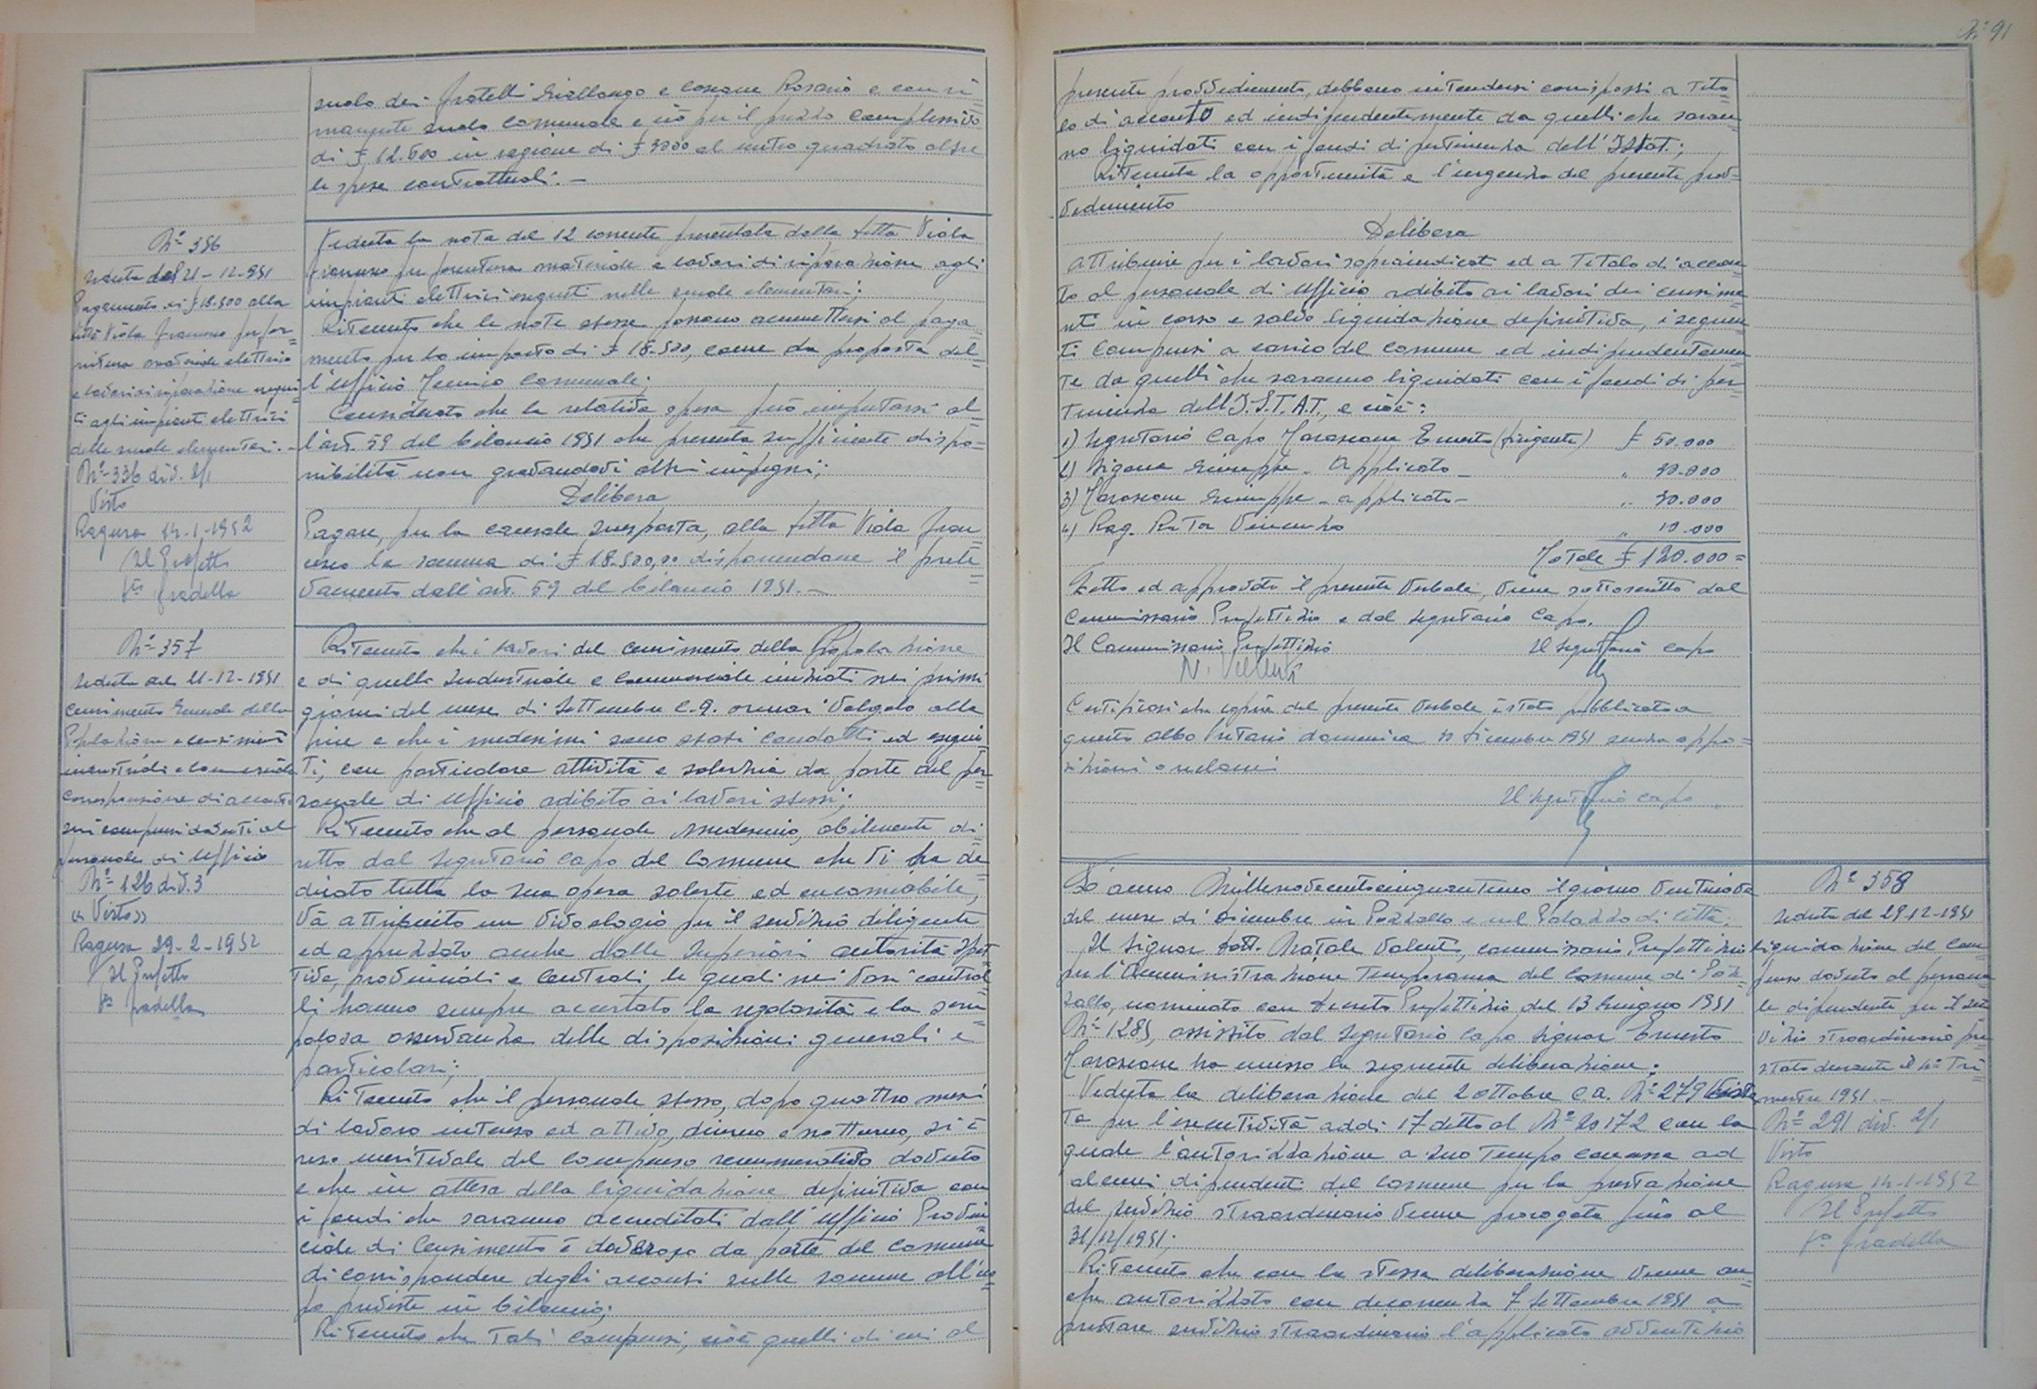 N° 91
suolo dei fratelli Giallongo e Cascone Rosario e con ri=
manente suolo Comunale e ciò per il prezzo complessivo
di £ 12.600 in ragione di £ 3000 al metro quadrato oltre
le spese contrattuali. —
N° 356
Seduta del 21-12-951
Pagamento di £ 18.500 alla
ditta Viola Francesco per for=
nitura materiale elettrico
e lavori di riparazione esegui=
ti agli impianti elettrici
delle scuole elementari. -
N° 336 div. 2/1
Visto
Ragusa 14-1-1952
Il Prefetto
Fto Gradella
Veduta la nota del 12 corrente presentata dalla ditta Viola
Francesco per fornitura materiale e lavori di riparazione agli
impianti elettrici eseguiti nelle scuole elementari;
Ritenuto che le note stesse possono ammettersi al paga=
mento per lo importo di £ 18.500, come da proposta del=
l'Ufficio Tecnico Comunale;
Considerato che la relativa spesa può imputarsi al=
l'art. 59 del bilancio 1951 che presenta sufficiente dispo=
nibilità non gravandovi altri impegni;
Delibera
Pagare, per la causale suesposta, alla ditta Viola Fran=
cesco la somma di £ 18.500,00 disponendone il prele=
vamento dall'art. 59 del bilancio 1951. —
N° 357
Seduta del 21-12-1951
Censimento Generale della
Popolazione e censimenti
industriali e commerciale
Corresponsione di acconti
sui compensi dovuti al
personale di Ufficio
N° 126 div. 3
"Visto"
Ragusa 29-2-1952
Il Prefetto
Fto Gradella
Ritenuto che i lavori del censimento della Popolazione
e di quello Industriale e Commerciale iniziati nei primi
giorni del mese di Settembre c.a. ormai volgolo alla
fine e che i medesimi sono stati condotti ed esegui=
ti, con particolare attività e solerzia da parte del per=
sonale di Ufficio adibito ai lavori stessi;
Ritenuto che al personale medesimo, abilmente di=
retto dal Segretario Capo del Comune che vi ha de=
dicato tutta la sua opera solerte ed encomiabile,
va attribuito un vivo elogio per il servizio diligente
ed apprezzato anche dalle Superiori autorità Ispet=
tive, provinciali e centrali, le quali nei vari control=
li hanno sempre accertato la regolarità e la scru=
polosa osservanza delle disposizioni generali e
particolari;
Ritenuto che il personale stesso, dopo quattro mesi
di lavoro intenso ed attivo, diurno e notturno, si è
reso meritevole del compenso remunerativo dovuto
e che in attesa della liquidazione definitiva con
i fondi che saranno accreditati dall'Ufficio Provin=
ciale di Censimento è doveroso da parte del Comune
di corrispondere degli acconti sulle somme all'uo=
po previste in bilancio;
Ritenuto che tali compensi, cioè quelli di cui al
presente provvedimento, debbono intendersi corrisposti a tito=
lo di acconto ed indipendentemente da quelli che saran=
no liquidati con i fondi di pertinenza dell'Istat.;
Ritenuta la opportunità e l'urgenza del presente prov=
vedimento
Delibera
Attribuire per i lavori sopraindicati ed a titolo di accon=
to al personale di Ufficio adibito ai lavori dei censime=
nti in corso e salvo liquidazione definitiva, i seguen=
ti compensi a carico del Comune ed indipendentemen=
te da quelli che saranno liquidati con i fondi di per=
tinenza dell'I.S.T.A.T., e cioè:
1) Segretario Capo Morascone Ernesto (dirigente) £ 50.000
2) Sigona Giuseppe - Applicato - " 30.000
3) Morascone Giuseppe - applicato - " 30.000
4) Rag. Ruta Vincenzo " 10.000
Totale £ 120.000=
Letto ed approvato il presente verbale, viene sottoscritto dal
Commissario Prefettizio e dal Segretario Capo.
Il Commissario Prefettizio Il Segretario Capo
N. Valenti
Certificasi che copia del presente verbale è stato pubblicato a
questo albo Pretorio domenica dicembre 1951 senza oppo=
sizioni o reclami
Il Segretario Capo
Lo anno Millenovecentocinquantuno il giorno ventinove
del mese di Dicembre in Pozzallo e nel Palazzo di Città;
Il Signor dott. Natale Valenti, commissario Prefettizio
per l'Amministrazione temporanea del Comune di Poz=
zallo, nominato con decreto Prefettizio del 13 Giugno 1951
N° 1285, assistito dal Segretario Capo Signor Ernesto
Morascone ha emesso la seguente deliberazione:
Veduta la deliberazione del 2 ottobre c.a. N° 279 vista=
ta per l'esecutività addì 17 detto al N° 20172 con la
quale l'autorizzazione a suo tempo concessa ad
alcuni dipendenti del Comune per la prestazione
del servizio straordinario venne prorogata fino al
31/12/1951;
Ritenuto che con la stessa deliberazione venne an=
che autorizzato con decorrenza 7 Settembre 1951 a
prestare servizio straordinario l'applicato avventizio
N° 358
Seduta del 29-12-1951
Liquidazione del Com=
penso dovuto al persona=
le dipendente per il ser=
vizio straordinario pre=
stato durante il 4° Tri=
mestre 1951. -
N° 291 div. 2/1
Visto
Ragusa 14-1-1952
Il Prefetto
Fto Gradella